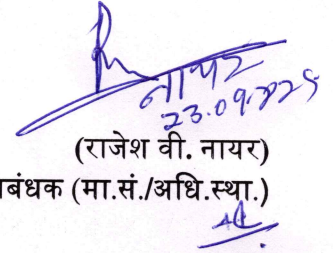 नायर
23.09.2025
(राजेश वी. नायर)
बंधक (मा.सं./अधि.स्था.)